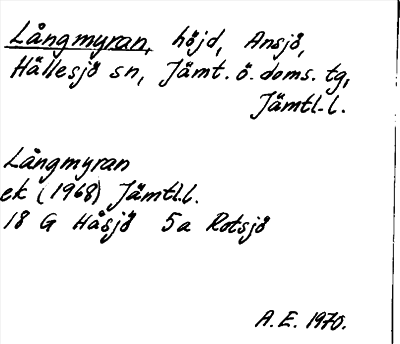 Långmyran, höjd, Ansjö,
Hällesjö sn, Jämt. ö. doms. tg,
Jämtl. l.
Långmyran
ek (1968) Jämtl.l.
18 G Håsjö 5a Rotsjö
A.E. 1970.